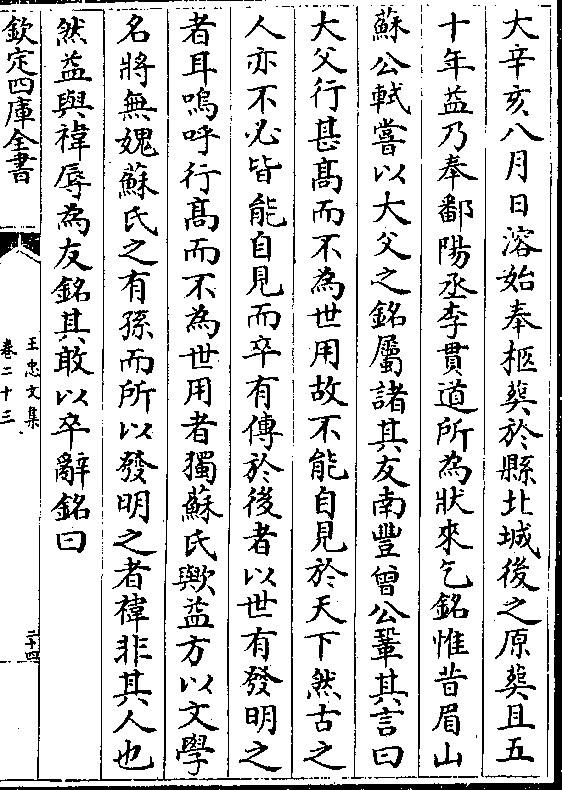 大辛亥八月日溶始奉柩葬於縣北城後之原葬且五
十年益乃奉鄱陽丞李貫道所為狀來乞銘惟昔眉山
蘇公軾嘗以大父之銘屬諸其友南豐曾公鞏其言曰
大父行甚髙而不為世用故不能自見於天下然古之
人亦不必皆能自見而卒有傳於後者以世有發明之
者耳嗚呼行髙而不為世用者獨蘇氏歟益方以文學
名將無媿蘇氏之有孫而所以發明之者禕非其人也
然益與禕辱為友銘其敢以卒辭銘曰
欽定四庫全書
王忠文集
卷二十三
二十四